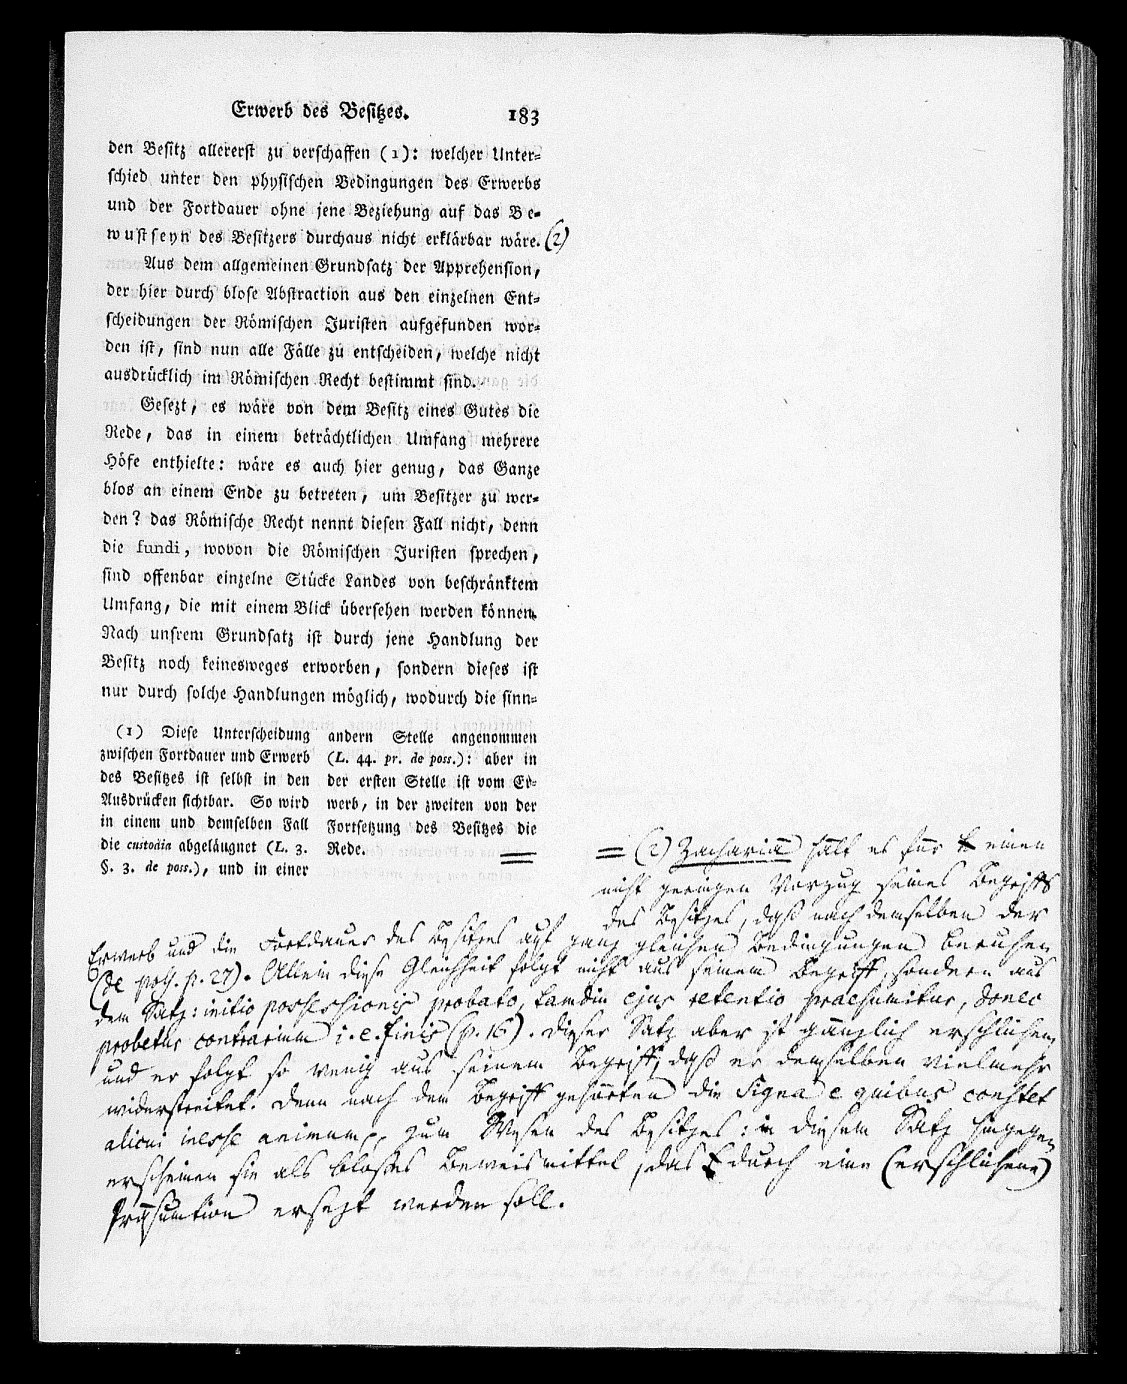 Erwerb des Besitzes. 183
den Besitz allererst zu verschaffen (1): welcher Unter-
schied unter den physischen Bedingungen des Erwerbs
und der Fortdauer ohne jene Beziehung auf das Be-
wustseyn des Besitzers durchaus nicht erklärbar wäre. (2)
Aus dem allgemeinen Grundsatz der Apprehension,
der hier durch blose Abstraction aus den einzelnen Ent-
scheidungen der Römischen Juristen aufgefunden wor-
den ist, sind nun alle Fälle zu entscheiden, welche nicht
ausdrücklich im Römischen Recht bestimmt sind.
Gesezt, es wäre von dem Besitz eines Gutes die
Rede, das in einem beträchtlichen Umfang mehrere
Höfe enthielte: wäre es auch hier genug, das Ganze
blos an einem Ende zu betreten, um Besitzer zu wer-
den? das Römische Recht nennt diesen Fall nicht, denn
die fundi, wovon die Römischen Juristen sprechen,
sind offenbar einzelne Stücke Landes von beschränktem
Umfang, die mit einem Blick übersehen werden können.
Nach unsrem Grundsatz ist durch jene Handlung der
Besitz noch keinesweges erworben, sondern dieses ist
nur durch solche Handlungen möglich, wodurch die sinn-
(1) Diese Unterscheidung
zwischen Fortdauer und Erwerb
des Besitzes ist selbst in den
Ausdrücken sichtbar. So wird
in einem und demselben Fall
die custodia abgeläugnet (L. 3.
§. 3. de poss.), und in einer
andern Stelle angenommen
(L. 44. pr. de poss.): aber in
der ersten Stelle ist vom Er-
werb, in der zweiten von der
Fortsetzung des Besitzes die
Rede.
= (2) Zachariä hält es für einen
nicht geringen Vorzug seines Begriffs
des Besitzes, daß nach demselben der
Erwerb und die Fortdauer des Besitzes auf ganz gleichen Bedingungen beruhen
(de poss. p. 27). Allein diese Gleichheit folgt nicht aus seinem Begriff, sondern aus
dem Satz: initio possessionis probato, tamdiu ejus retentio praesumitur, donec
probetur contrarium i. e. finis (p. 16). Dieser Satz aber ist gänzlich erschlichen,
und er folgt so wenig aus seinem Begriff, daß er demselben vielmehr
widerstreitet. Denn nach dem Begriff gehörten die Signa e quibus constet
alicui inesse animum, zum Wesen des Besitzes: in diesem Satz hingegen
erscheinen sie als bloßes Beweismittel, das durch eine (erschlichene)
Präsumtion ersezt werden soll.